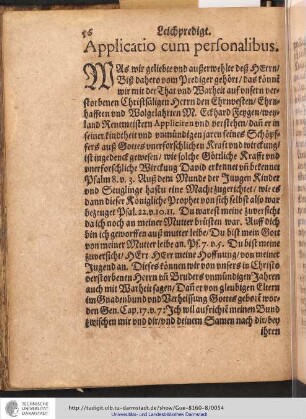 56 Leichpredigt.
Applicatio cum personalibus.
WAs wir geliebte vnd außerwehlte deß HErrn/
Biß dahero vom Prediger gehöre/ das könnẽ
wir mit der That vnd Warheit auf vnsern ver-
storbenen Christsäligen Herrn den Ehrwesten/ Ehrn-
hafften vnd Wolgelahrten M. Eckhard
land Rentmeistern Appliciren vnd verstehn/ dañ er in
seiner kindtheit vnd vnmündigen jaren seines Schöpf-
fers auß Gottes vnerforschlichen Krafft vnd wirckung/
ist ingedenck gewesen/ wie solche Göttliche Krafft vnd
vnerforschliche Wirckung David erkennet vñ bekennet
Psalm 8. v. 3. Auß dem Munde der Jungen Kinder
vnd Seuglinge hastu eine Macht zugerichtet/ wie es
dann dieser Königliche Prophet von sich selbst also war
bezeuget Psal. 22. v. 10. 11. Du warest meine zuversicht
da ich noch an meiner Mutter brüsten war. Auff dich
bin ich geworffen auß mutter leibe/ Du bist mein Gott
von meiner Mutter leibe an. Ps. 7. v. 5. Du bist meine
zuversicht/ HErr HErr meine Hoffnung/ von meiner
Jugend an. Dieses können wir von vnsers in Christo
verstorbenen Herrn vñ Bruders vnmündigen Jahren
auch mit Warheit sagen/ Dañ er von gleubigen Eltern
im Gnadenbund vnd Verheissung Gottes geboren worden
Gen. Cap. 17. v. 7: Ich will auffricht meinen Bund
zwischen mir vnd dir/ vnd deinem Samen nach dir/ bey
ihren
TECHNISCHE
UNIVERSITÄT
DARMSTADT
http://tudigit.ulb.tu-darmstadt.de/show/Gue-8160-8/0054
Universitäts- und Landesbibliothek Darmstadt